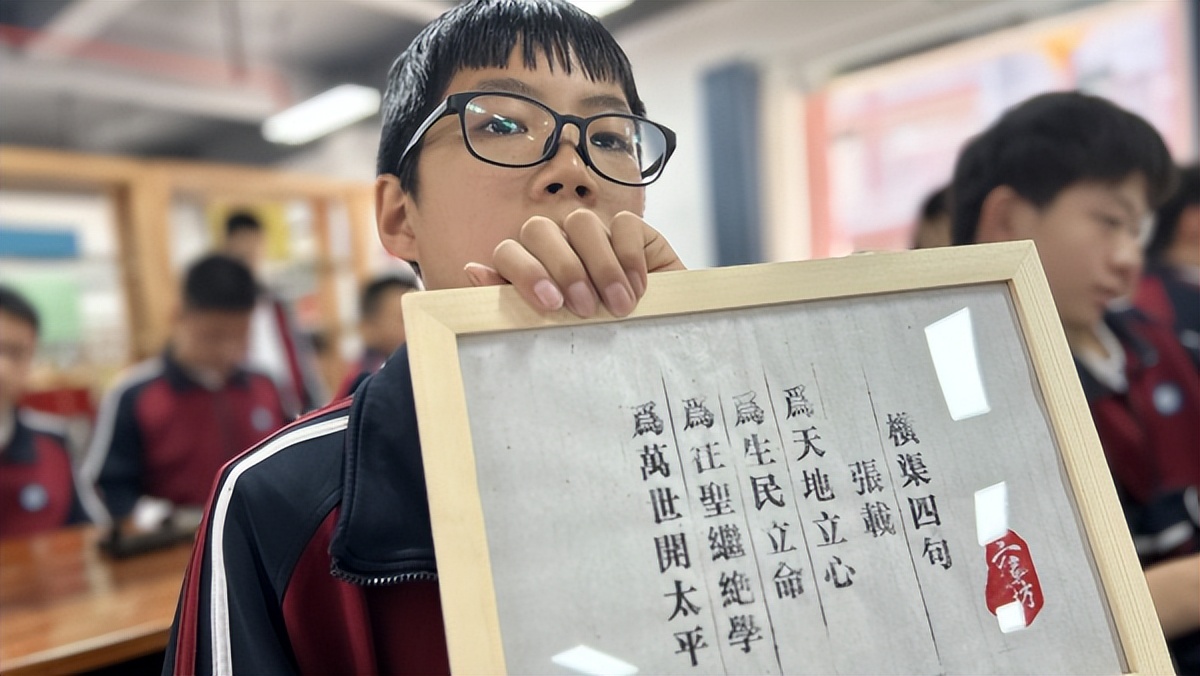 橫渠四句
張載
爲天地立心
爲生民立命
爲往聖繼絶學
爲萬世開太平